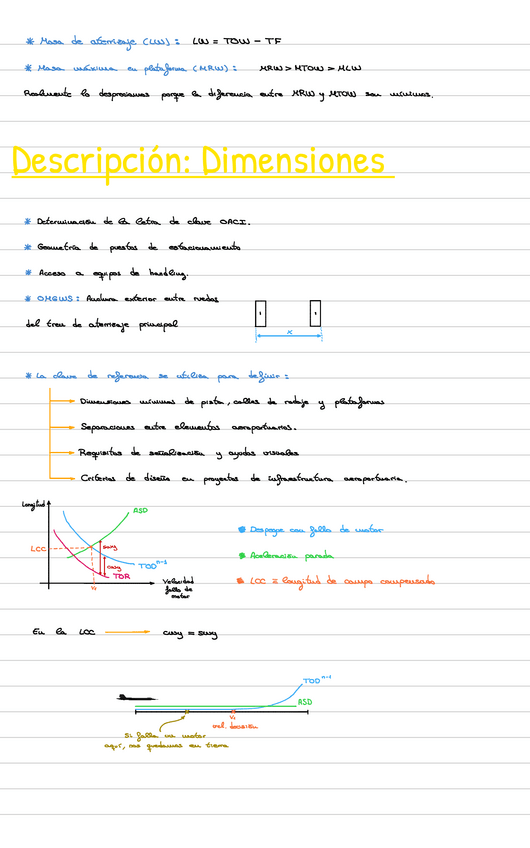 * Masa de aterrizaje (LW): LW = TOW - TF
* Masa máxima en plataforma (MRW): MRW > MTOW > MLW
Realmente lo despreciamos porque la diferencia entre MRW y MTOW son mínimas.
Descripción: Dimensiones
* Determinación de la letra de clave OACI.
* Geometría de puestos de estacionamiento
* Acceso a equipos de handling.
* OMGWS: Anchura exterior entre ruedas
del tren de aterrizaje principal
x
* La clave de referencia se utiliza para definir:
Dimensiones mínimas de pista, calles de rodaje y plataformas
Separaciones entre elementos aeroportuarios.
Requisitos de señalización y ayudas visuales
Criterios de diseño en proyectos de infraestructura aeroportuaria.
Longitud
ASD
LCC
swy
cwy
TOD n-1
TOR
V1
Velocidad
fallo de
motor
Despegue con fallo de motor
Aceleración parada
LCC = longitud de campo compensado
En la LCC → cwy = swy
TOD n-1
ASD
V1
vel. decisión
Si falla un motor
aquí, nos quedamos en tierra